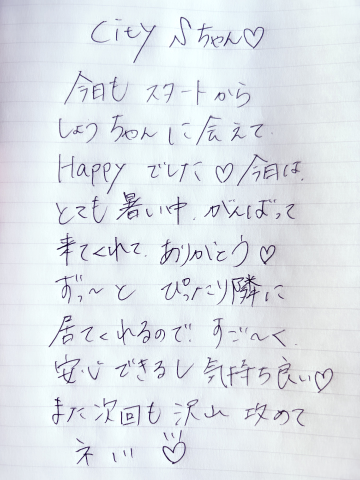 City Sちゃん♡
今日も スタートから
しょうちゃんに会えて
Happy でした♡今日は、
とても暑い中、がんばって
来てくれて、ありがとう♡
ずっ〜と ぴったり隣に
居てくれるので、すご〜く、
安心できるし気持ち良い♡
また次回も沢山 攻めて
ネ!!! ♡